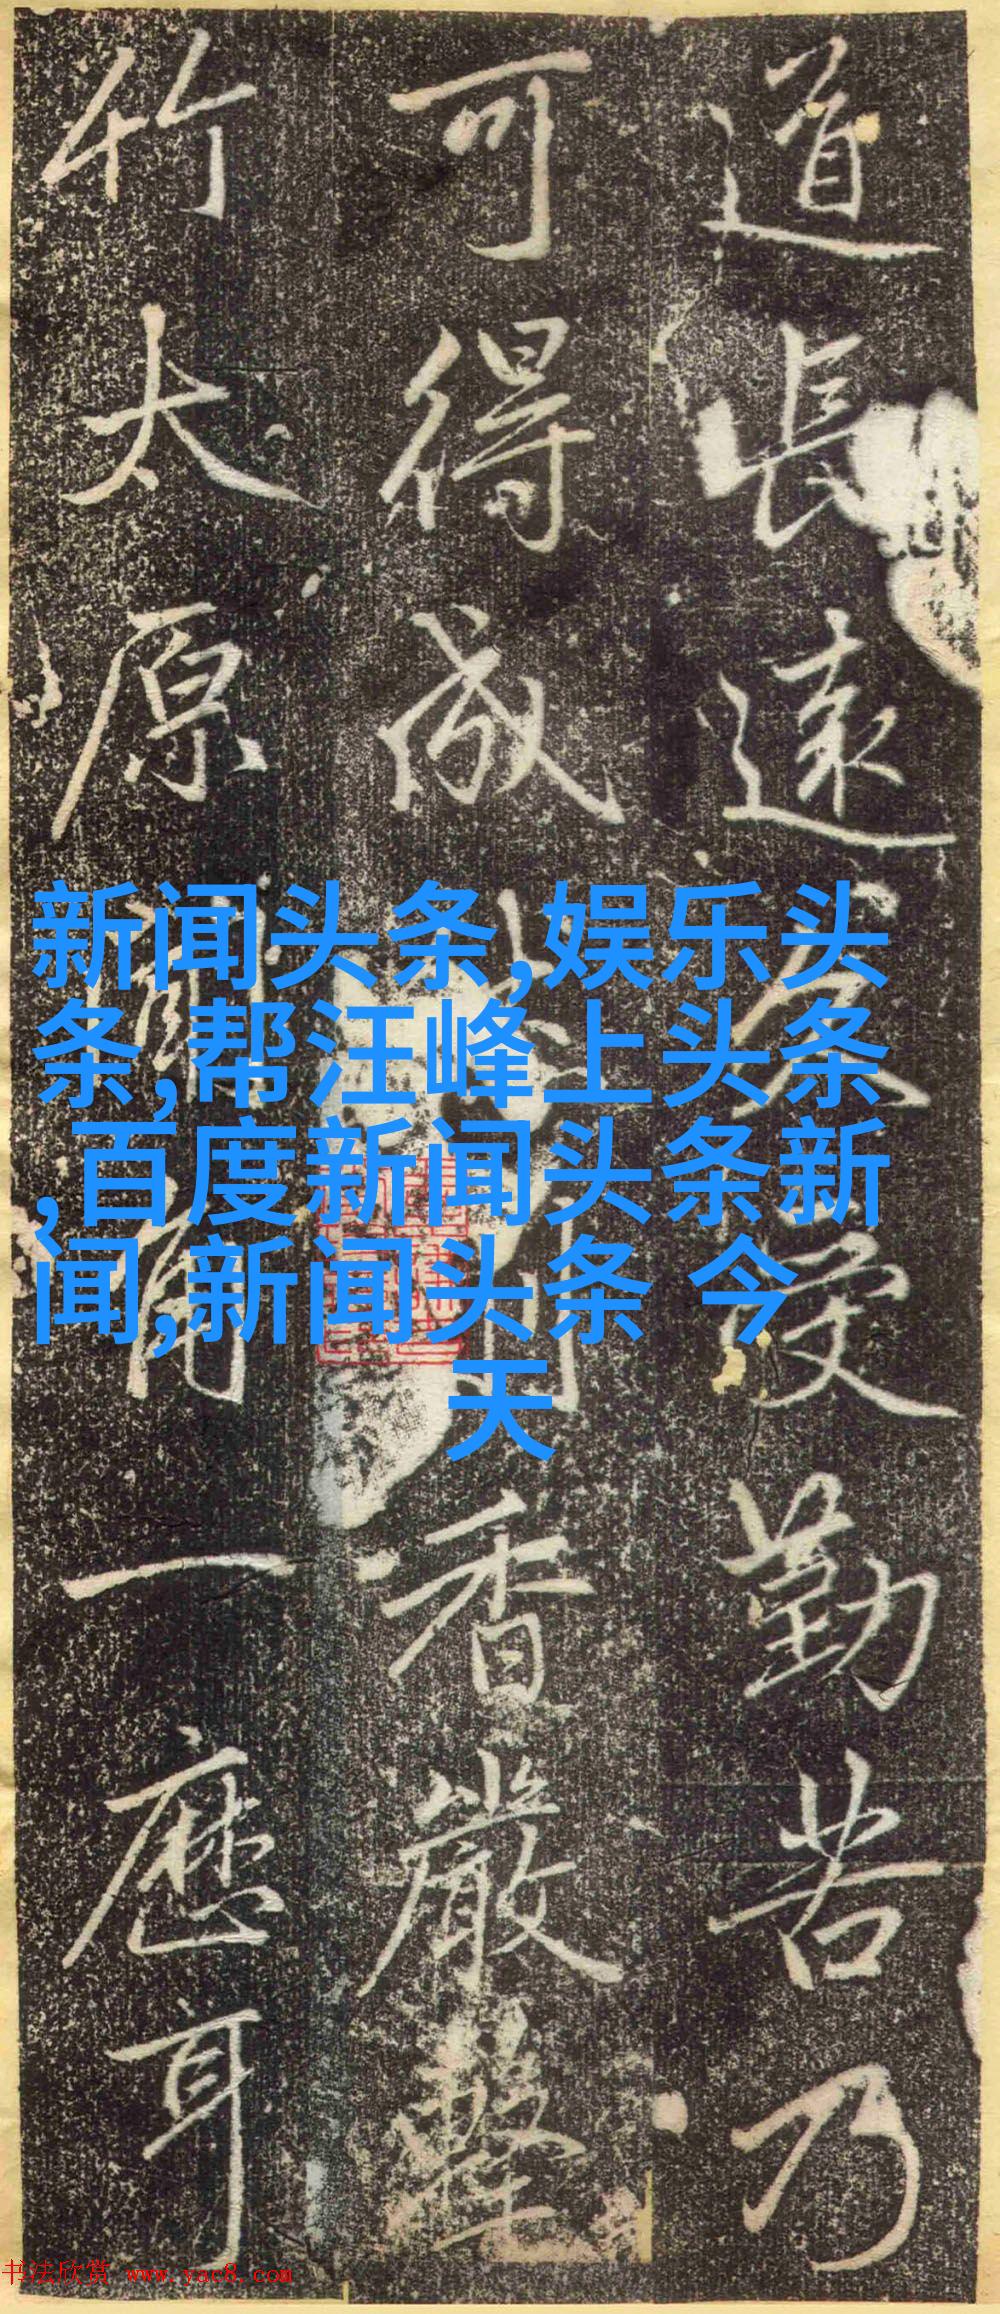 道長遠久受勤苦乃
可得成香嚴擊
竹太原一應耳
新闻头条,娱乐头
条,帮汪峰上头条
,百度新闻头条新
闻,新闻头条 今
天
书法欣赏 www.yac8.com